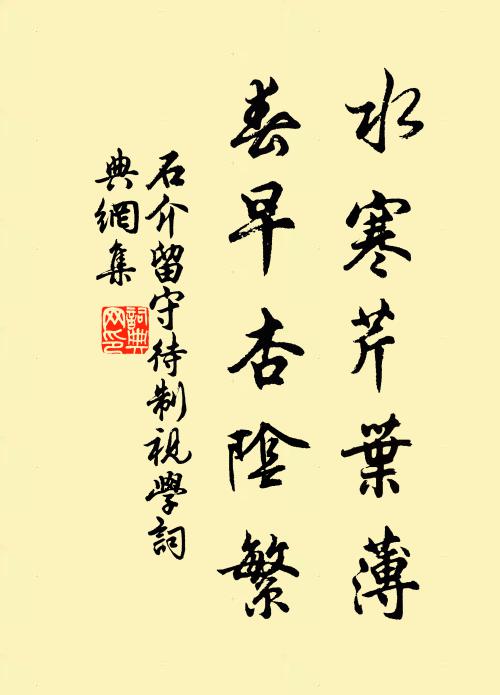 水寒芹葉薄
春早杏陰繁
石介留守待制視學詞
典網集
詞典
网印